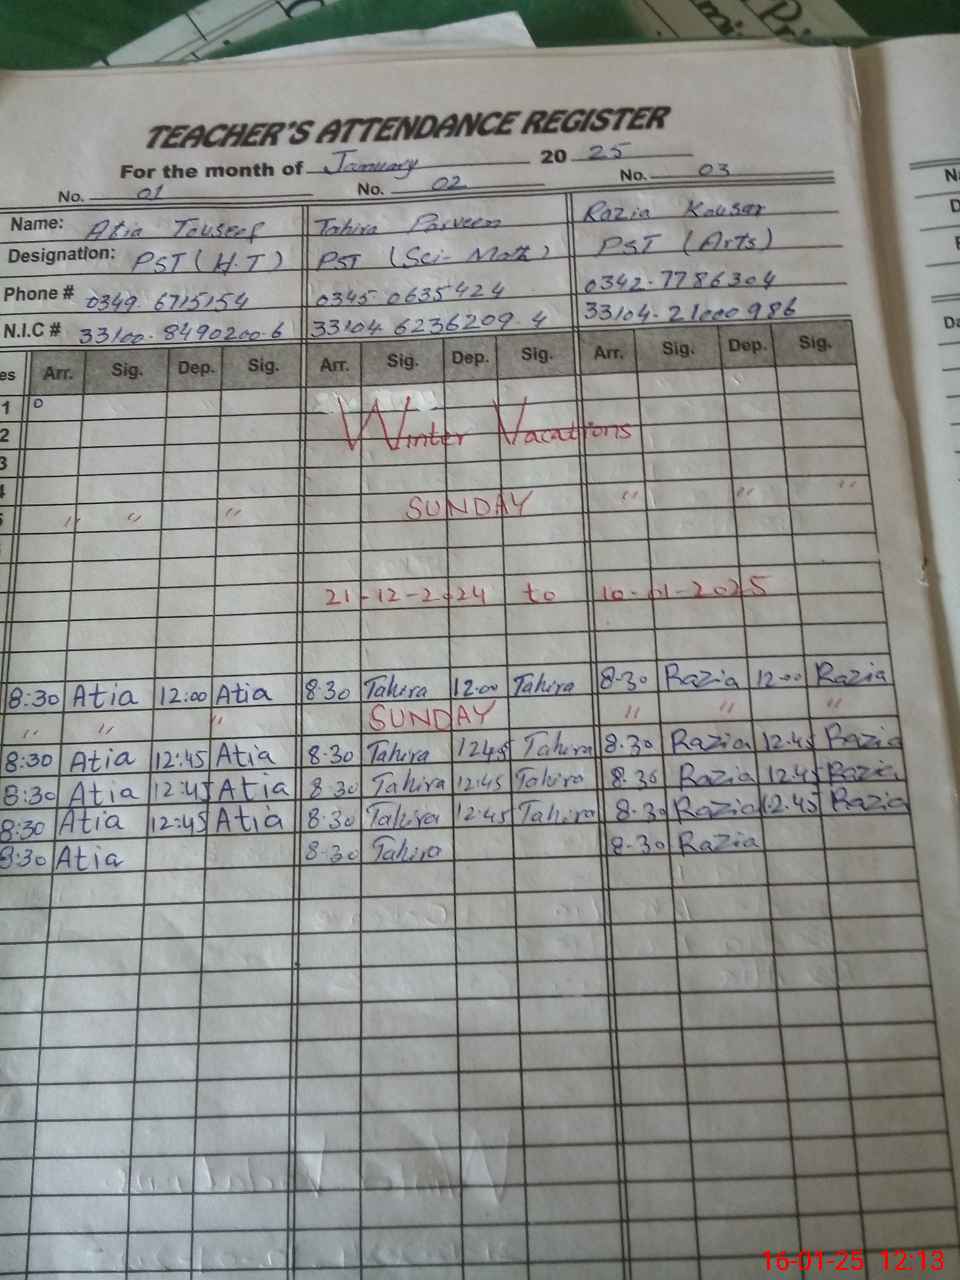 TEACHER'S ATTENDANCE REGISTER
For the month of January 2025
No. 01 No. 02 No. 03
Name: Atia Touseef Tahira Parveen Razia Kousar
Designation: PST (H.T) PST (Sci-Math) PST (Arts)
Phone # 0349 6715154 0345 0635424 0342-7786304
N.I.C # 33100-8490200-6 33104 6236209-4 33104-21000986
es Arr. Sig. Dep. Sig. Arr. Sig. Dep. Sig. Arr. Sig. Dep. Sig.
1
2 Winter Vacations
3
4
5 " " " SUNDAY " " "
21-12-2024 to 10-01-2025
8:30 Atia 12:00 Atia 8-30 Tahira 12-00 Tahira 8-30 Razia 12-00 Razia
" " " SUNDAY " " "
8:30 Atia 12:45 Atia 8-30 Tahira 1245 Tahira 8-30 Razia 12-45 Razia
8:30 Atia 12:45 Atia 8-30 Tahira 12-45 Tahira 8-30 Razia 12-45 Razia
8:30 Atia 12:45 Atia 8-30 Tahira 12-45 Tahira 8-30 Razia 12-45 Razia
8:30 Atia 8-30 Tahira 8-30 Razia
16-01-25 12:13